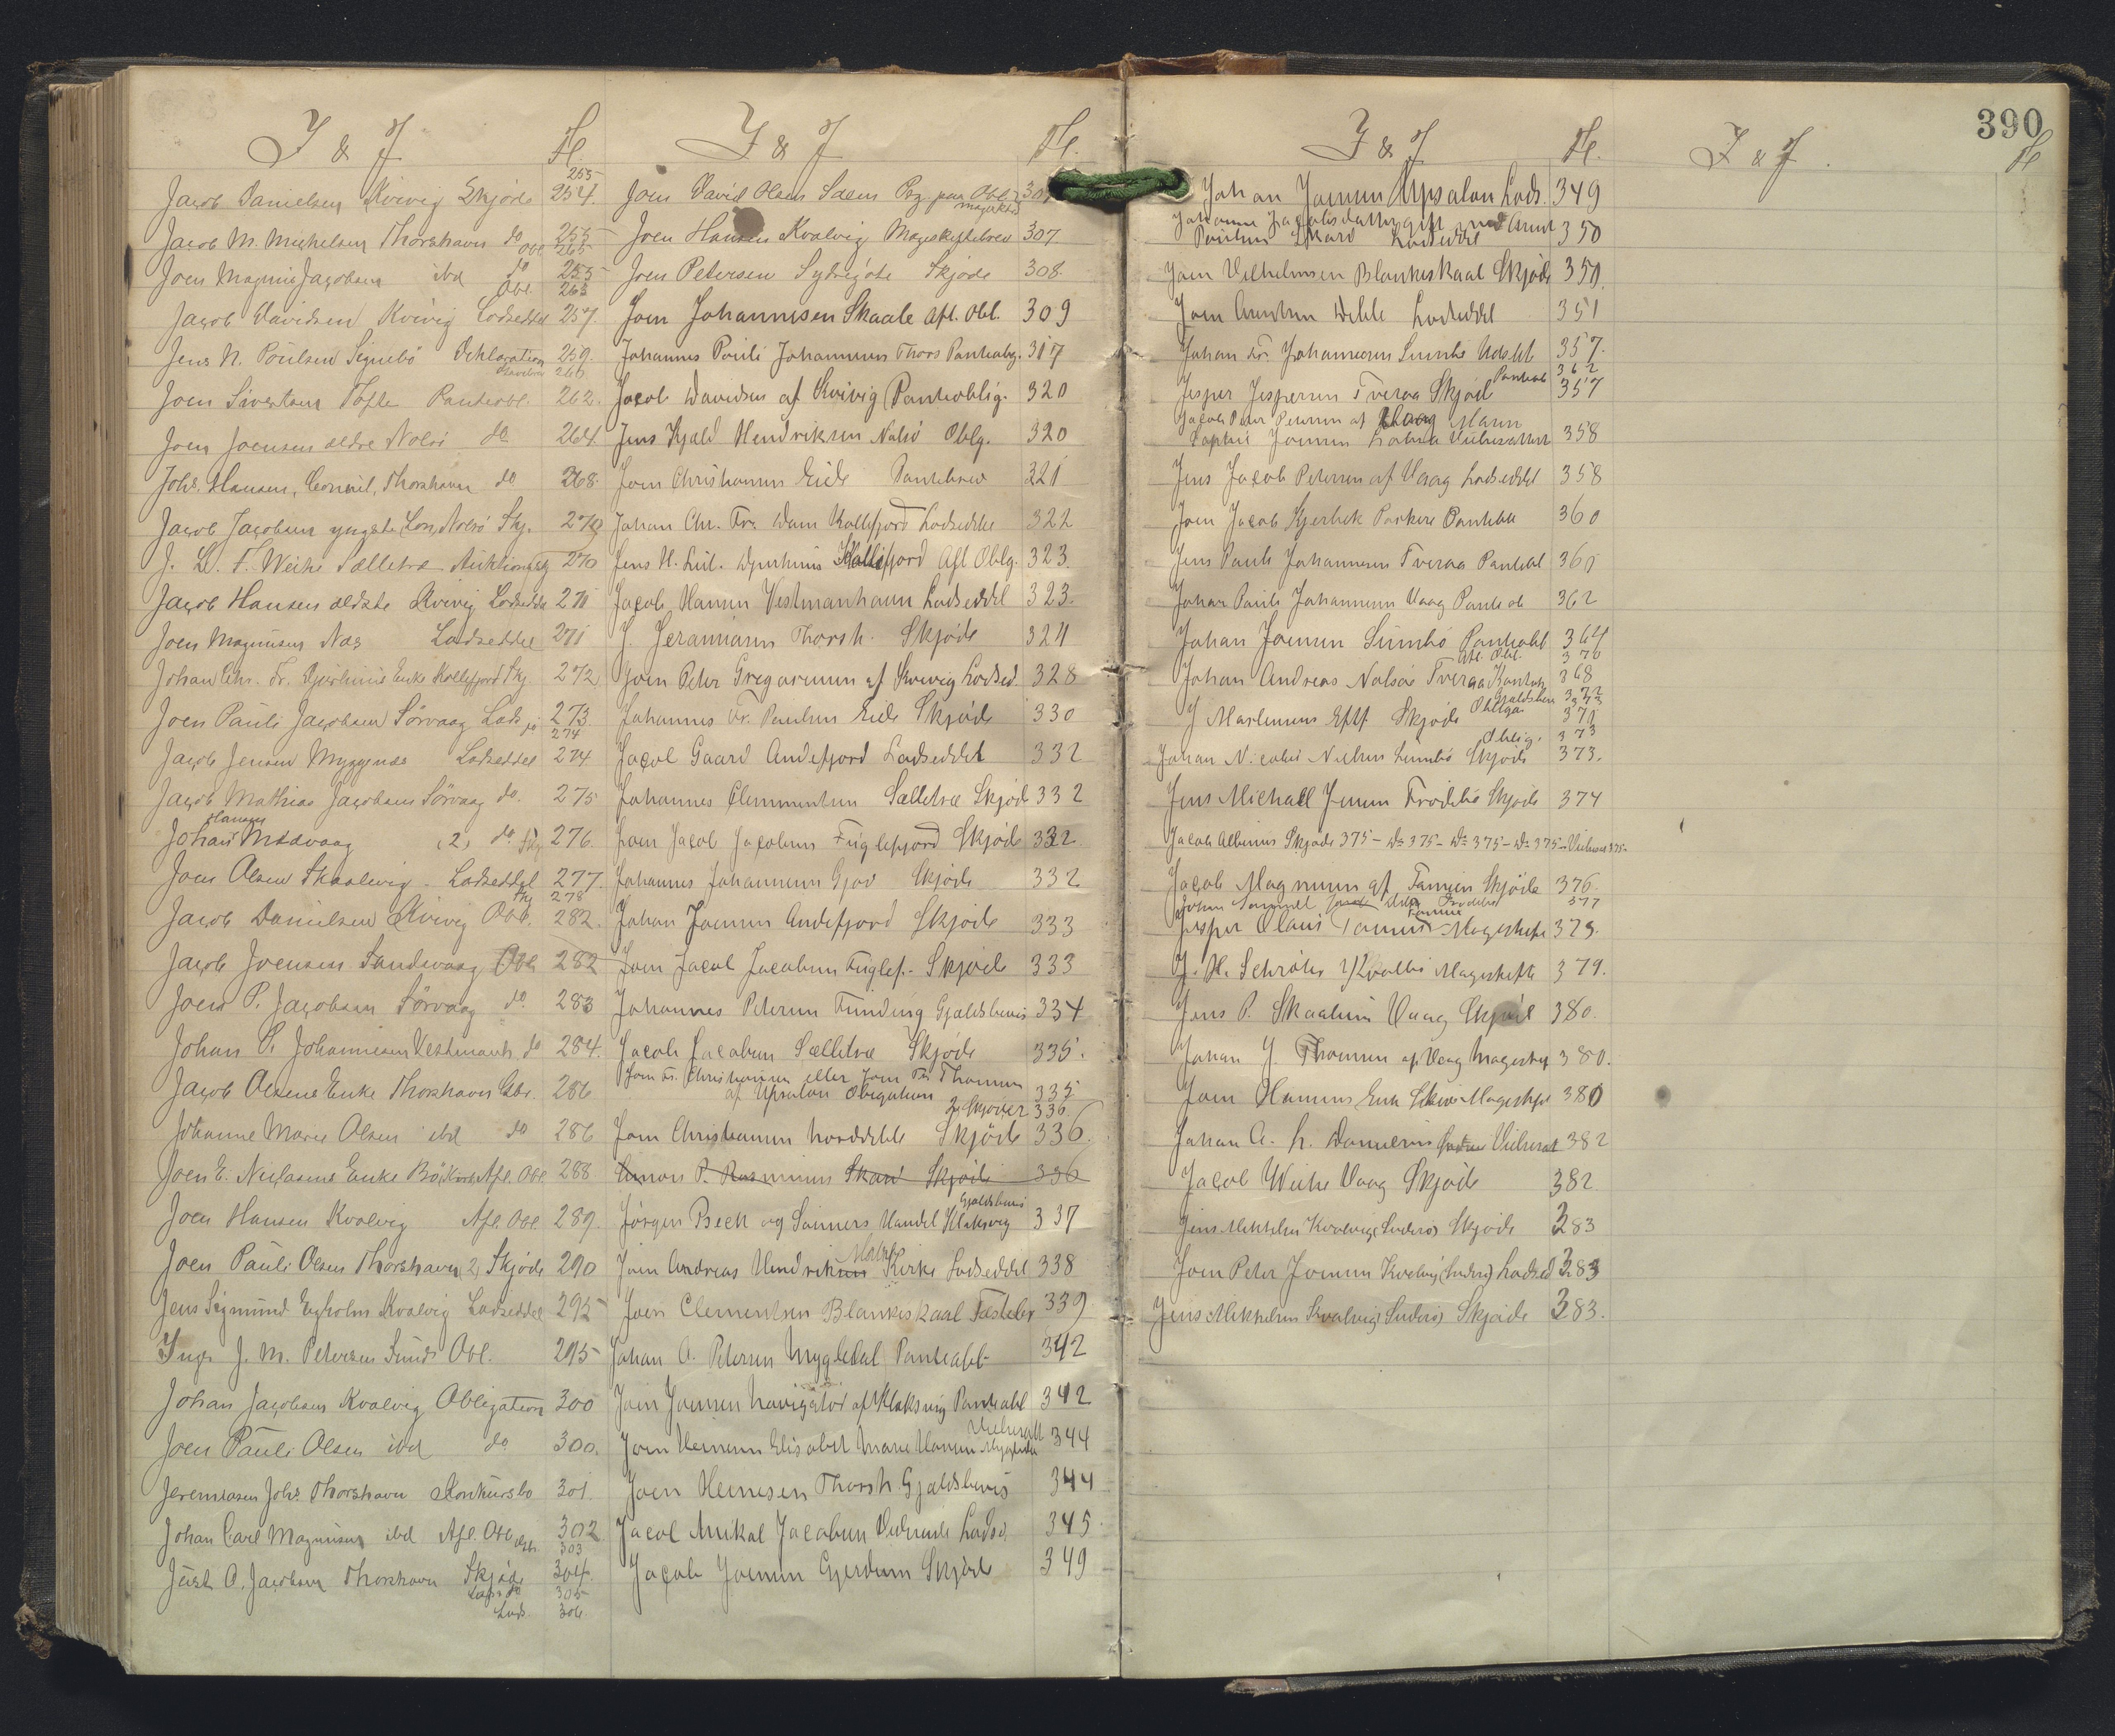 390
I & J Fl.
255
Jacob Danielsen Kvivig Skjöde 254.
Jacob M. Michelsen Thorshavn do 255
Obl 265
Joen Magnus Jacobsen ibd do 255
Obl. 265
Jacob Davidsen Kvivig Lodseddel 257.
Jens N. Poulsen Signebö Deklaration 259.
260
Joen Sivertsen Tofte Panteobl. 262.
Joen Joensen ældre Nolsö do 264.
Johs. Hansen, Thorshavn do 268.
Jacob Jacobsen yngste Nolsö Skj. 270
J. L. F. Weihe Sælletræ Auktions 270
Jacob Hansen ældste Kvivig Lodseddel 271
Joen Magnusen Næs Lodseddel 271
Johan Chr. Fr. Djurhuus Enke Kollefjord Skj 272
Joen Pauli Jacobsen Sörvaag Lods 273.
do 274
Jacob Jensen Myggenæs Lodseddel 274
Jacob Mathias Jacobsen Sörvaag do. 275
Hansen
Johan Midvaag (2) do Skj 276.
Joen Olsen Skaalevig Lodseddel 277.
Skj 278
Jacob Danielsen Kvivig Obl. 282.
Jacob Joensen Sandevaag Obl 282
Joen P. Jacobsen Sörvaag do. 283
Johan P. Johannesen Vestmanh. do 284.
Jacob Olsens Enke Thorshavn Gbr. 286
Johanne Marie Olsen ibd do 286
Joen E. Niclasens Enke Bö, Afl. Obl. 288
Joen Hansen Kvalvig Afl. Obl. 289.
Joen Pauli Olsen Thorshavn 2 Skjöde 290
Jens Sigmund Egholm Kvalvig Lodseddel 295
Inge J. M. Petersen Sund Obl. 295
Johan Jacobsen Kvalvig Obligation 300
Joen Pauli Olsen ibd do 300.
Jeremiasen Johs. Thorshavn Konkursbo 301.
Johan Carl Magnusen ibd Afl. Obl. 302
303
Just A. Jacobsen Thorshavn Skjöde 304.
do 305
Lods. 306.
I & J Fl.
Joen David Olsen Salen
Joen Hansen Kvalvig Mageskiftebrev 307
Joen Petersen Sydregöte Skjöde 308
Joen Johannesen Skaale Afl. Obl. 309
Johannes Pauli Johannesen Thors Panteobg. 317
Jacob Davidsen af Kvivig Panteoblig. 320
Jens Kjeld Hendriksen Nolsö Oblg. 320
Joen Christiansen Eide Pantebrev 321
Johan Chr. Fr. Dam Kollefjord Lodseddel 322
Jens H. Lut. Djurhuus Kollefjord Afl Oblg. 323.
Jacob Hansen Vestmanhavn Lodseddel 323.
J. Jeramiasen Thorsh. Skjöde 324
Joen Peter Gregorsen af Kvivig Lodsed. 328
Johannes Fr. Poulsen Eide Skjöde 330
Jacob Gaard Andefjord Lodseddel 332
Johannes Clementsen Sælletræ Skjöde 332
Joen Jacob Jacobsen Fuglefjord Skjöde 332.
Johannes Johannesen Gjov Skjöde 332
Johan Joensen Andefjord Skjöde 333
Joen Jacob Jacobsen Fuglef. Skjöde 333
Johannes Petersen Funding Gjældsbevis 334
Jacob Jacobsen Sælletræ Skjöde 335.
Joen Fr. Christiansen eller Joen Fr. Thomsen
af Upsalon Obligation 335
2 Skjöder 336
Joen Christiansen Norddeble Skjöde 336.
Simon P. Rasmusen Skaard Skjöde 336
Gjældsbevis
Jörgen Beck og Sönners Handel Klaksvig 337
Joen Andreas Hendriksen Kirke Lodseddel 338
Joen Clementsen Blankeskaal Fæstebr 339
Johan A. Petersen Mygledal Panteobl 342
Joen Joensen Navigatör af Klaksvig Panteobl 342
Joen Heinesen Elisabet Marie Hansen Mygledal 344
Joen Heinesen Thorsh. Gjældsbevis 344
Jacob Mikal Jacobsen Viderejde Lods. 345
Jacob Joensen Gjerdum Skjöde 349
I & J Fl.
Johan Joensen Upsalon Lods. 349
Johanne Jacobsdatter gift med Arent
Poulsen Skard Lodseddel 350
Joen Vilhelmsen Blankeskaal Skjöde 350.
Joen Arentsen Deble Lodseddel 351
Johan Fr. Johannesen Sumbö Udskt 357.
Panteob 362
Jesper Jespersen Tveraa Skjöde 357
Jacob Peter Petersen af Vaag Mann
Sophie Joensen Vielsesattest 358
Jens Jacob Petersen af Vaag Lodseddel 358
Joen Jacob Kjerbek Porkere Panteobl 360
Jens Pauli Johannesen Tveraa Panteobl 361
Johan Pauli Johannesen Vaag Panteob 362
Johan Joensen Sumbö Panteobl 364
Afl. Obl. 370
Johan Andreas Nolsöe Tveraa 368
Gjældsbev 372
J Mortensens Eftf. Skjöde 371
Oblig. 373
Johan Nicolai Nielsen Sumbö Skjöde 373.
Jens Michael Jensen Frodebö Skjöde 374
Jacob Albinus Skjöde 375 – do 375 – do 375 – do 375 –
Jacob Magnusen af Famien Skjöde 376.
377
Famien
Jesper Olaus Mageskifte 379.
J. H. Schröter Hvalbö Mageskifte 379.
Jens P. Skaalum Vaag Skjöde 380.
Johan J. Thomsen af Vaag Mageskif 380.
Joen Hansens Enk Mageskift 380
Johan A. L. Danielsen Vielsesat 382
Jacob Weihe Vaag Skjöde 382
Jens Mikkelsen Kvalvig (Suderö) Skjöde 383
Joen Peter Joensen Kvalvig (Suderö) Lodsed 383
Jens Mikkelsen Kvalvig (Suderö) Skjöde 383.
I & J. Fl